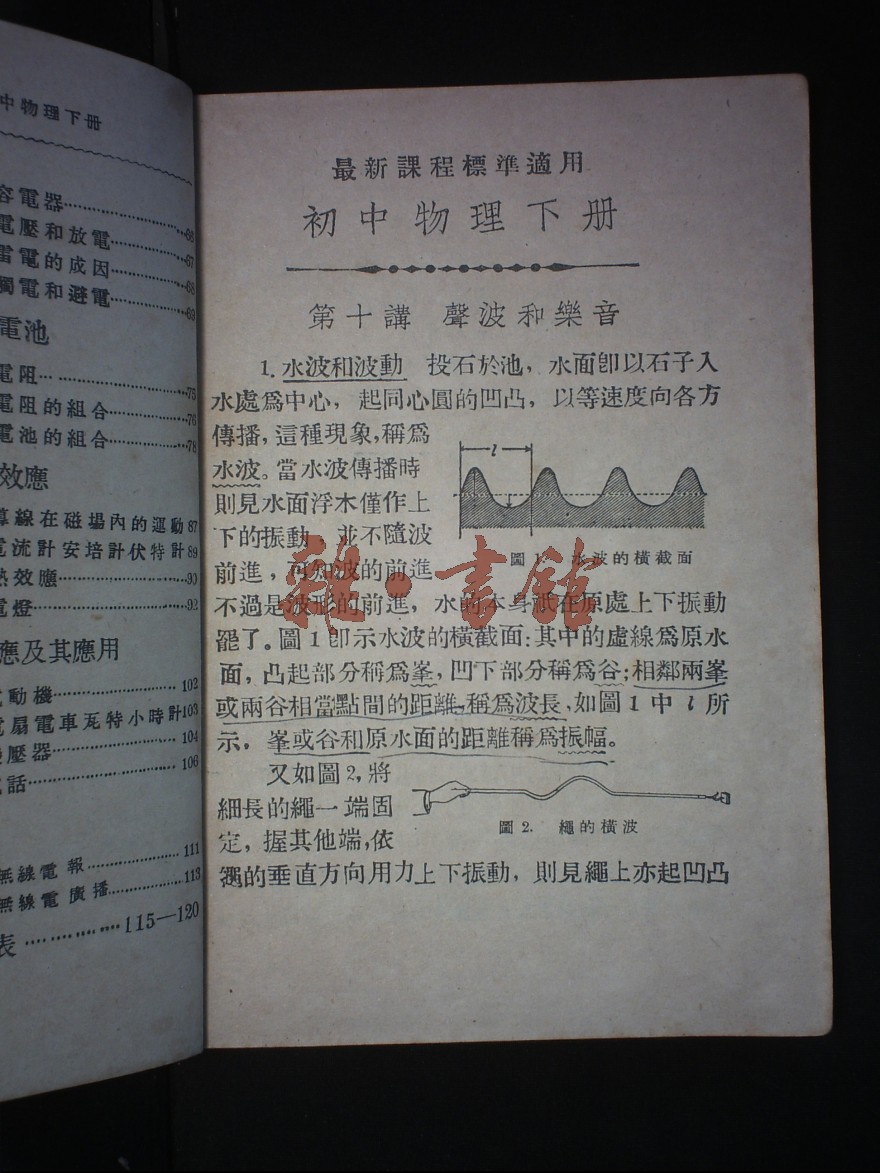 中物理下册
容電器 66
電壓和放電 67
雷電的成因 68
觸電和避電 69
電池
電阻 75
電阻的組合 76
電池的組合 78
效應
導線在磁場內的運動 87
電流計安培計伏特計 89
熱效應 90
電燈 92
應及其應用
電動機 102
電扇電車瓦特小時計 103
變壓器 104
電話 106
無線電報 111
無線電廣播 113
表 115—120
最新課程標準適用
初中物理下册
第十講 聲波和樂音
1. 水波和波動 投石於池，水面卽以石子入
水處爲中心，起同心圓的凹凸，以等速度向各方
傳播，這種現象，稱爲
水波。當水波傳播時
則見水面浮木僅作上
下的振動，並不隨波
前進，可知波的前進
l
圖 1. 水波的橫截面
不過是波形的前進，水的本身祇在原處上下振動
罷了。圖1卽示水波的橫截面：其中的虛線爲原水
面，凸起部分稱爲峯，凹下部分稱爲谷；相鄰兩峯
或兩谷相當點間的距離，稱爲波長，如圖1中l所
示，峯或谷和原水面的距離稱爲振幅。
又如圖2，將
細長的繩一端固
定，握其他端，依
圖 2. 繩的橫波
繩的垂直方向用力上下振動，則見繩上亦起凹凸
雜·書館